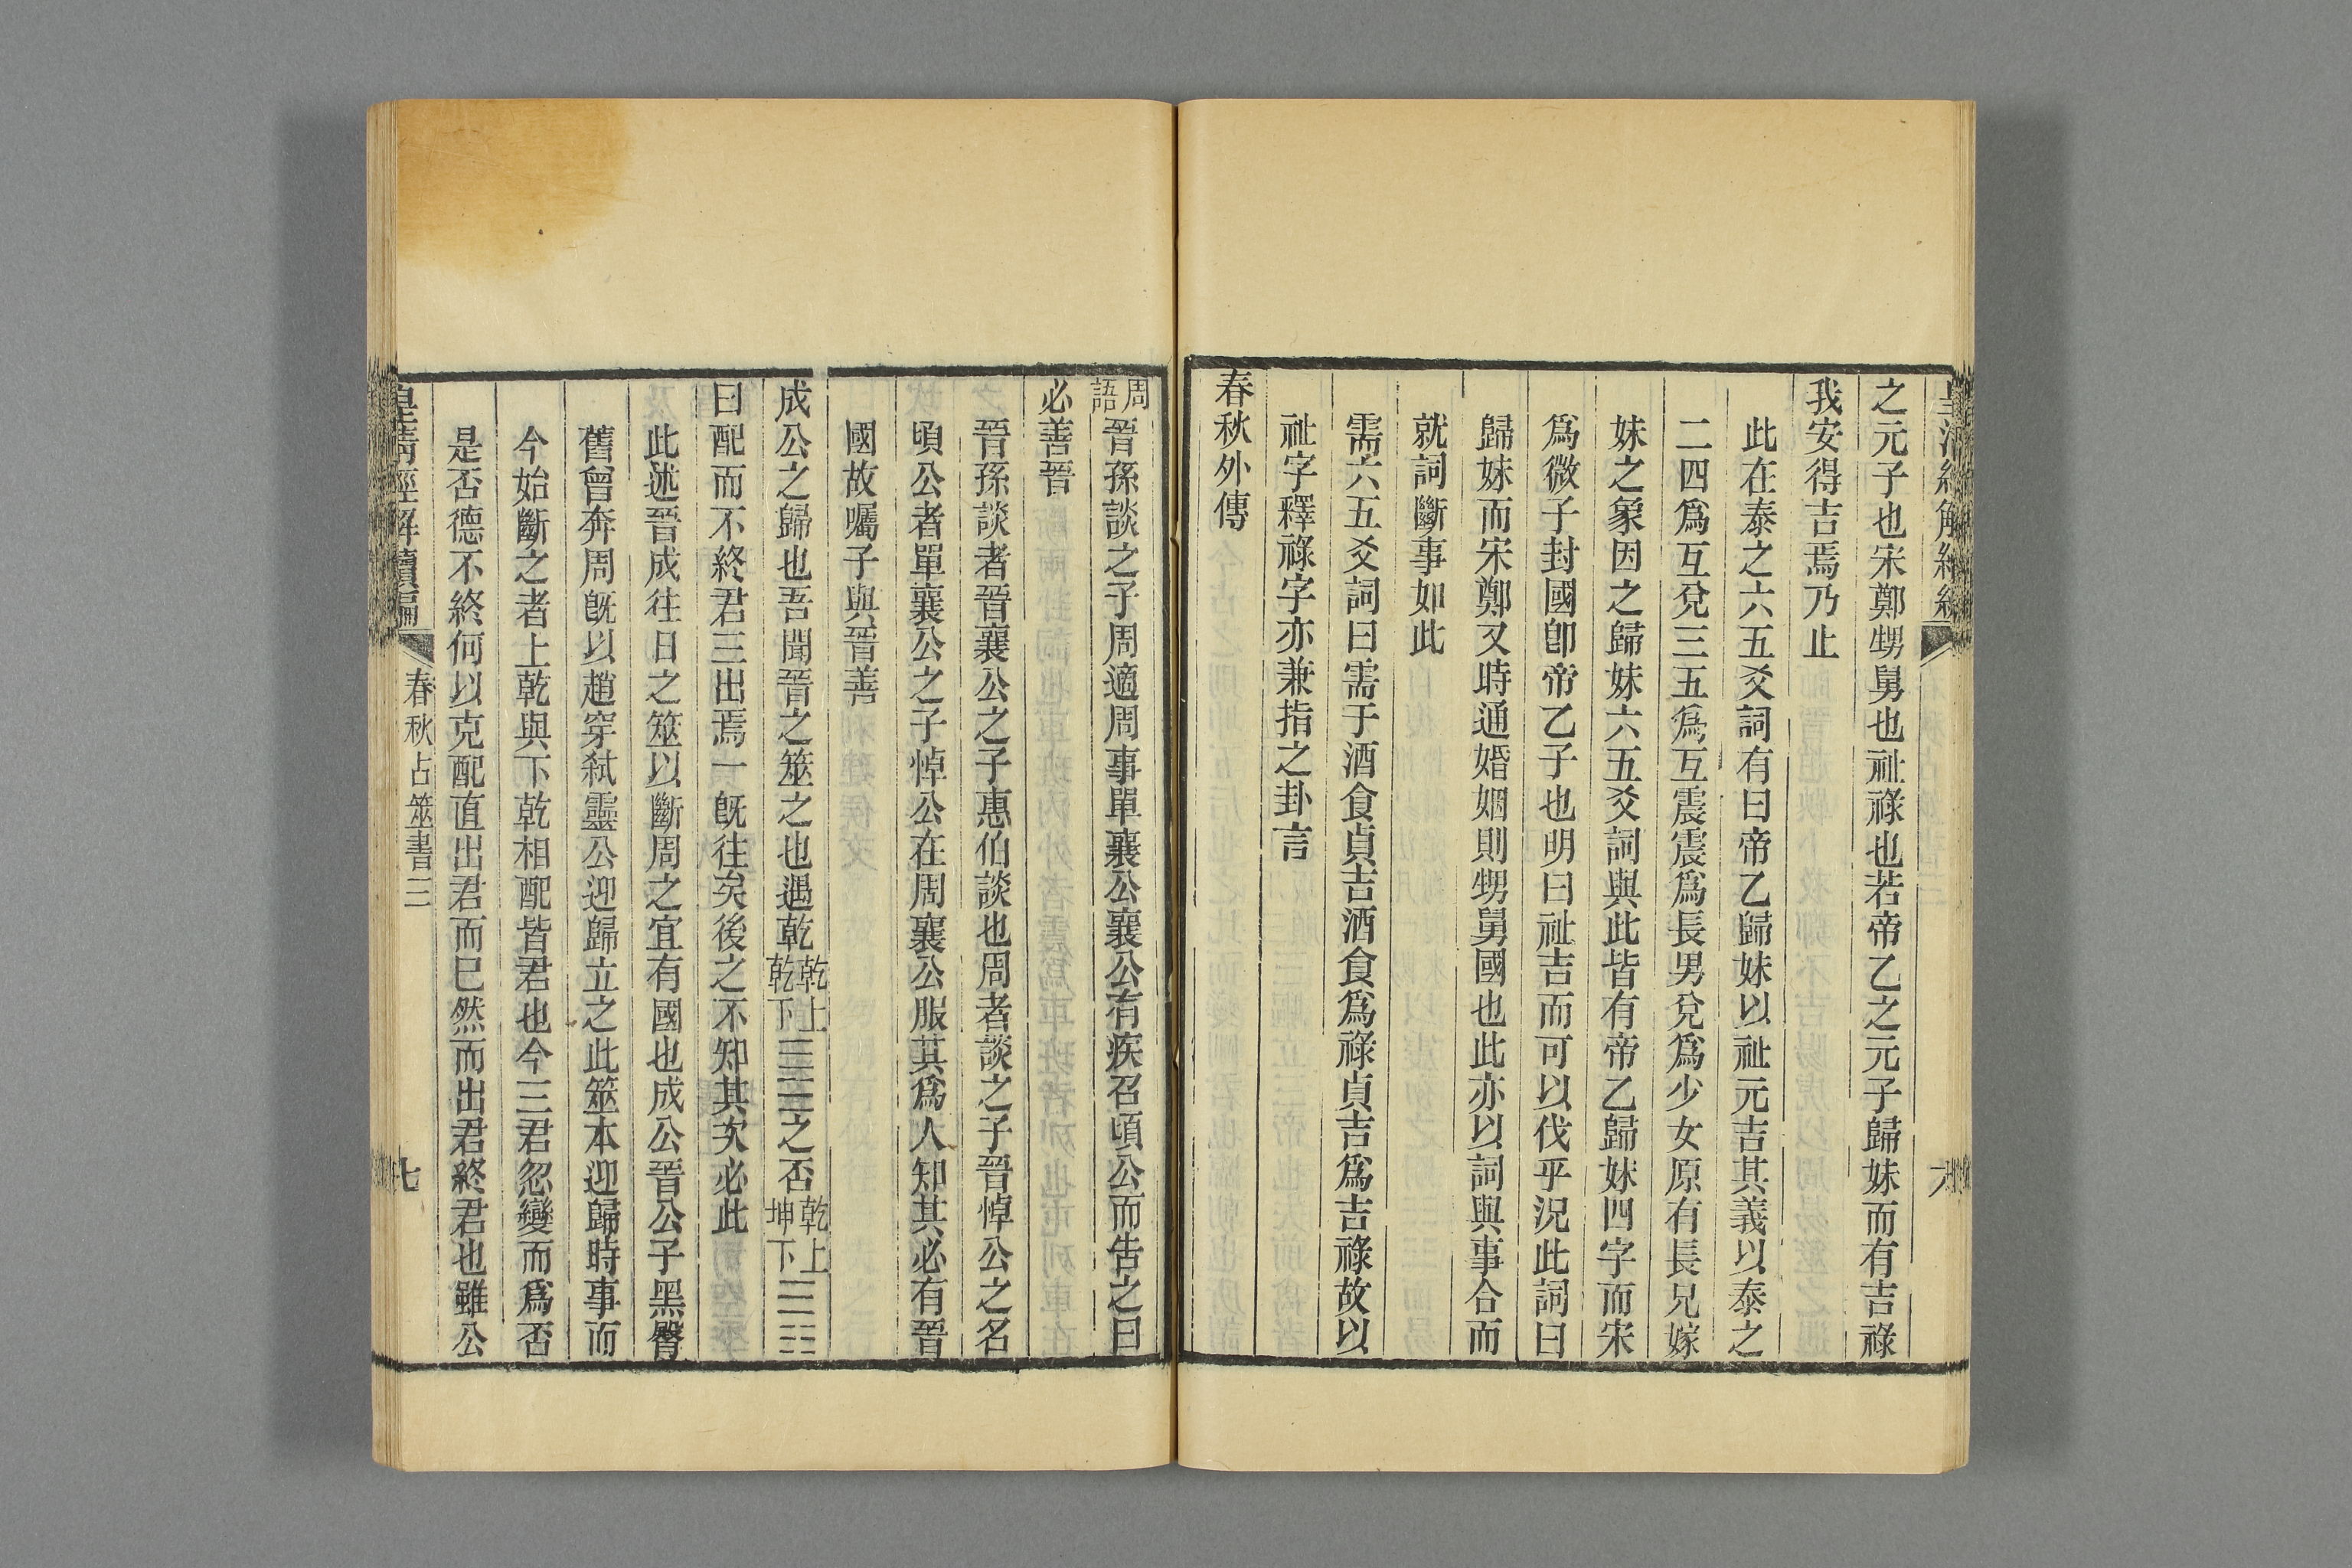 之元子也宋鄭甥舅也祉祿也若帝乙之元子歸妹而有吉祿
我安得吉焉乃止
此在泰之六五爻詞有曰帝乙歸妹以祉元吉其義以泰之
二四爲互兌三五爲互震震爲長男兌爲少女原有長兄嫁
妹之象因之歸妹六五爻詞與此皆有帝乙歸妹四字而宋
爲微子封國卽帝乙子也明曰祉吉而可以伐乎況此詞曰
歸妹而宋鄭又時通婚姻則甥舅國也此亦以詞與事合而
就詞斷事如此
需六五爻詞曰需于酒食貞吉酒食爲祿貞吉爲吉祿故以
祉字釋祿字亦兼指之卦言
春秋外傳
周語晉孫談之子周適周事單襄公襄公有疾召頃公而告之曰
必善晉
晉孫談者晉襄公之子惠伯談也周者談之子晉悼公之名
頃公者單襄公之子悼公在周襄公服其爲人知其必有晉
國故囑子與晉善
成公之歸也吾聞晉之筮之也遇乾乾上乾下☰☰之否乾上坤下☰☷
曰配而不終君三出焉一旣往矣後之不知其次必此
此述晉成往日之筮以斷周之宜有國也成公晉公子黑臀
舊曾奔周旣以趙穿弒靈公迎歸立之此筮本迎歸時事而
今始斷之者上乾與下乾相配皆君也今三君忽變而爲否
是否德不終何以克配直出君而巳然而出君終君也雖公
皇淸經解續編
春秋占筮書三
七